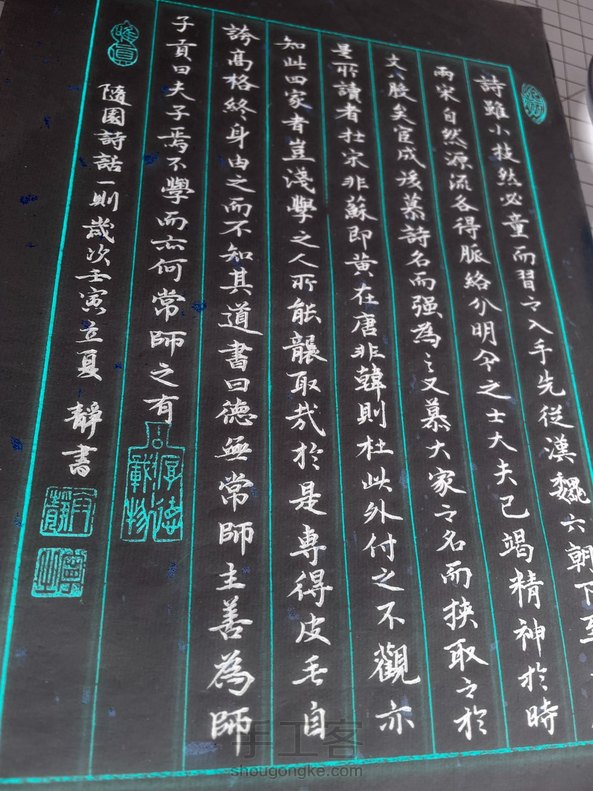 詩雖小技然必童而習之入手先從漢魏六朝下至
兩宋自然源流各得脈絡分明今之士大夫已竭精神於時
文八股矣宦成後慕詩名而强為之又慕大家之名而挾取之於
是所讀者在宋非蘇即黄在唐非韓則杜此外付之不觀亦
知此四家者豈淺學之人所能襲取哉於是專得皮毛自
誇高格終身由之而不知其道書曰德無常師主善為師
子貢曰夫子焉不學而亦何常師之有
厚德載物
隨園詩話一則歲次壬寅立夏 靜書
手工客
shougongke.com